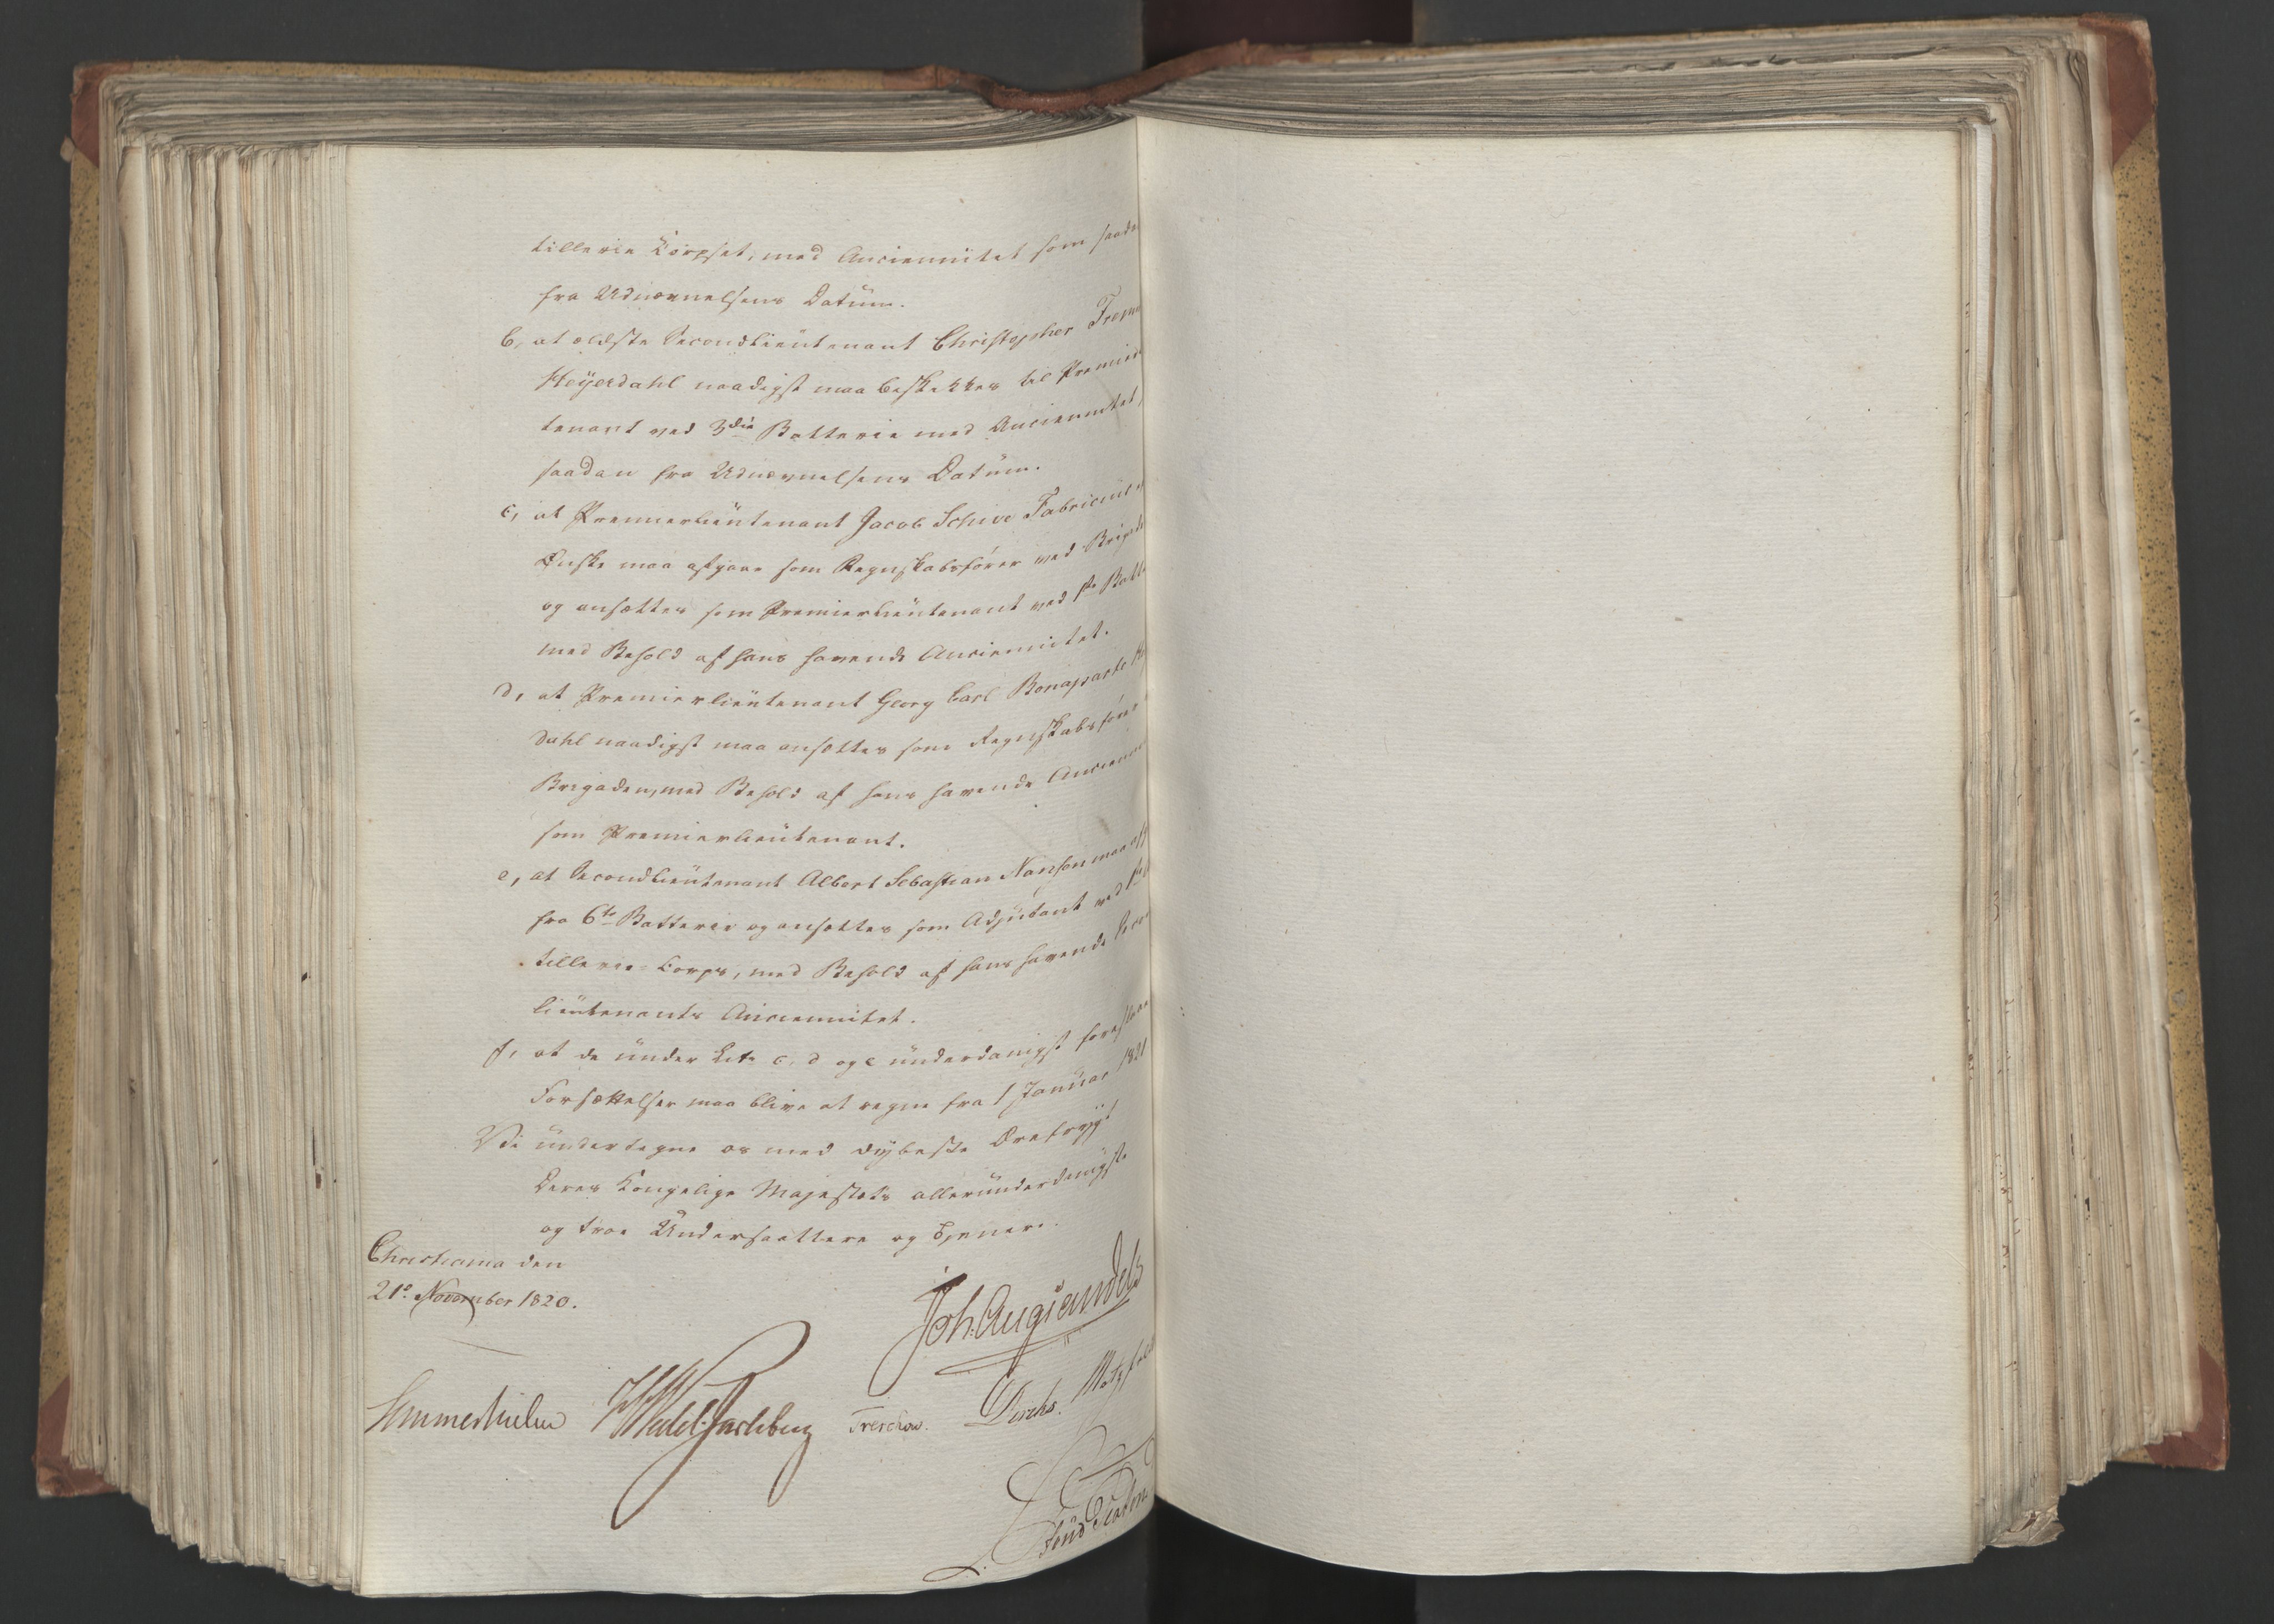 tillerie Corpset, med Anciennitet som saada
fra Udnævnelsens Datum.
b, at ældste Secondlieutenant Christopher From
Heÿerdahl naadigst maa beskikkes til Premier
tenant ved 3die Batterie med Anciennitet
saadan fra Udnævnelsens Datum.
c, at Premierlieutenant Jacob Schive Fabricius
Ønske maa afgaae som Regnskabsfører ved Brigade
og ansættes som Premierlieutenant ved 1ste Batte
med Behold af hans havende Anciennitet.
d, at Premierlieutenant Georg Carl Bonaparte
dahl naadigst maa ansættes som Regnskabsfører
Brigaden, med Behold af hans havende Ancienni
som Premierlieutenant.
e, at Secondlieutenant Albert Sebastian Nanson maa
fra 6te Batterie og ansættes som Adjutant ved 1ste
tillerie-Corps, med Behold af hans havende Secon
lieutenants Anciennitet.
f, at de under Litr c, d og e underdanigst foreslaae
Forsættelser maa blive at regne fra 1 Januar 1821
Vi undertegne os med dÿbeste Ærefrygt
Deres Kongelige Majestæts allerunderdanigste
og troe Undersaattere og Tjenere.
Christiania den
21de November 1820.
Joh. Aug Sandels
Sommerhielm WedelJarlsberg Treschow. Diriks. Motzfeldt